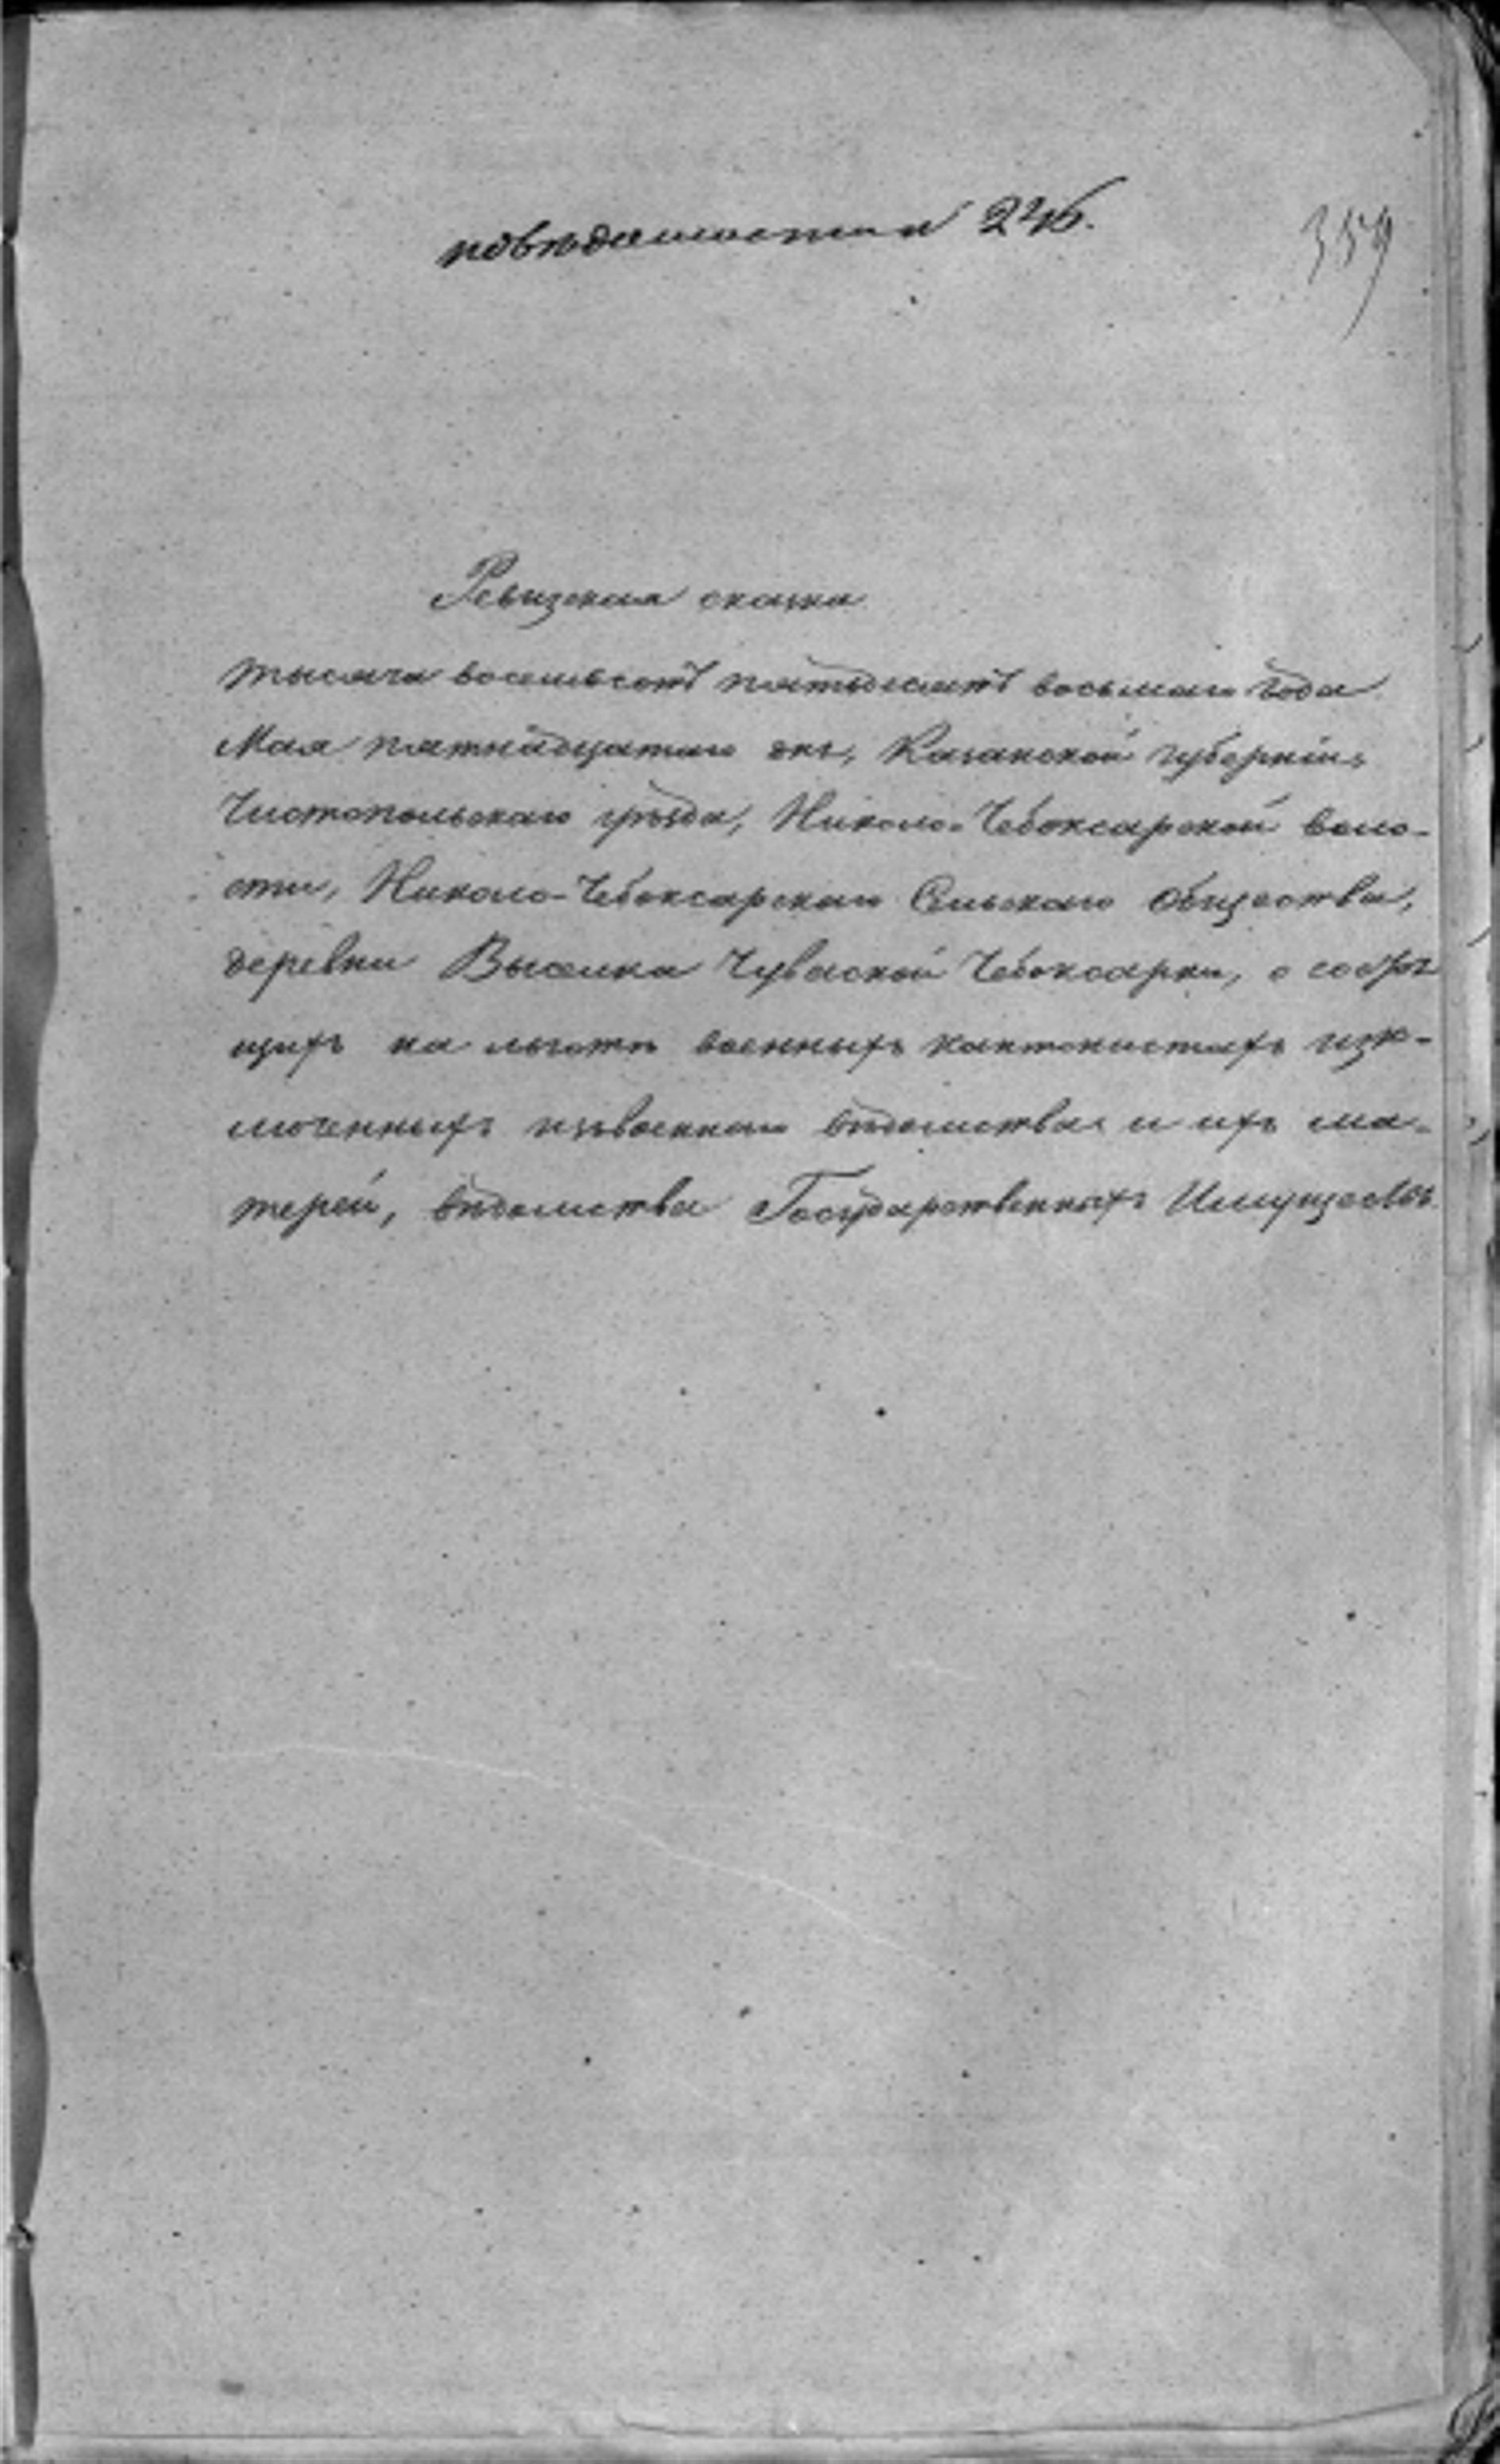 повѣдомости 22й.
359
Ревизская сказка
тысяча восемьсотъ пятьдесятъ восьмаго года
Мая пятнадцатаго дня, Казанской губерніи,
Чистопольскаго уѣзда, Николо-Чебоксарской воло-
сти, Николо-Чебоксарскаго Сельскаго общества,
деревни Выселка Чувашской Чебоксарки, о состоя
щихъ на льготѣ военныхъ кантонистахъ изк-
люченныхъ изъвоеннаго вѣдомства и ихъ ма-
терей, вѣдомства Государственныхъ Имуществъ